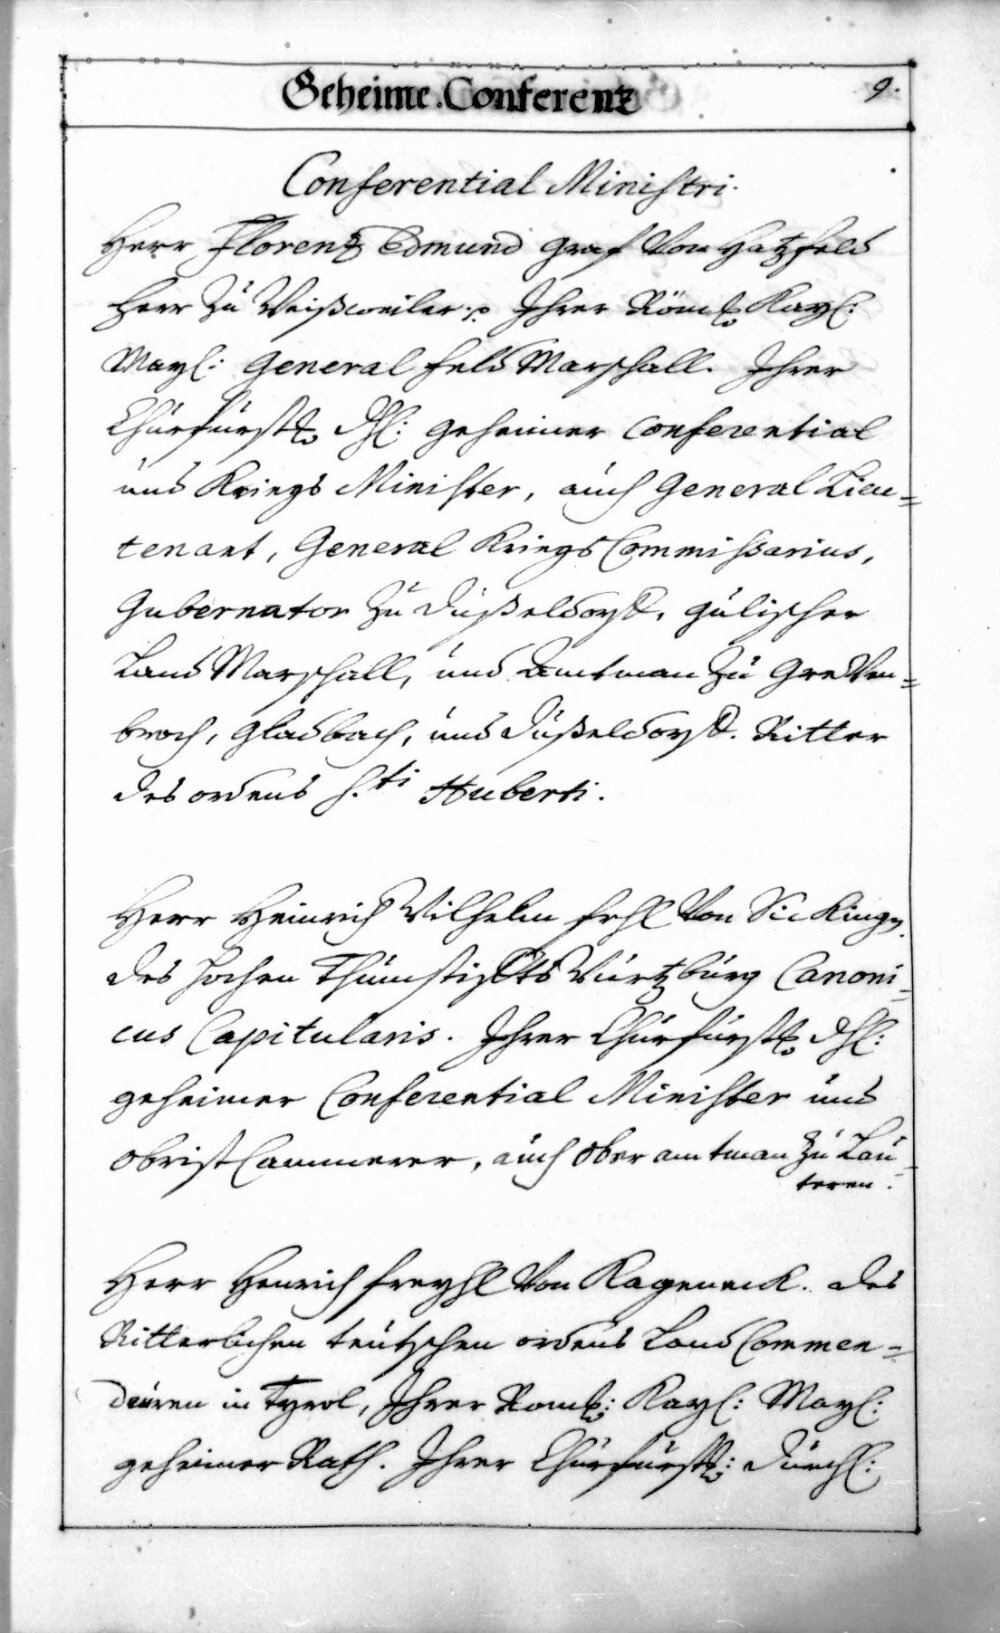 Geheime Conferentz
9.
Conferential Ministri.
Herr Florentz Edmund Graf von Hatzfeld
Herr zu Weißweiler. Ihrer Röm. Kayl:
Mayl: General feld Marschall. Ihrer
Churfürstl. Dhl: geheimer Conferential
und Kriegs Minister, auch General Lieu=
tenant, General Kriegs Commissarius,
Gubernator zu Düßeldorff, Gülischer
Land Marschall, und Amtman zu Greven=
broch, Gladbach, und Düßeldorff. Ritter
des ordens S.ti Huberti.
Herr Heinrich Wilhelm frhl von Sickingen
des hohen Thumstiffts Würtzburg Canoni=
cus Capitularis. Ihrer Churfürstl. Dhl:
geheimer Conferential Minister und
Obrist Cammerer, auch Ober amtman zu Lau=
teren.
Herr Henrich freyhl von Kageneck. des
Ritterlichen teutschen ordens Land Commen=
deuren in Tyrol, Ihrer Röm: Kayl: Mayl:
geheimer Rath. Ihrer Churfürstl: Durchl: